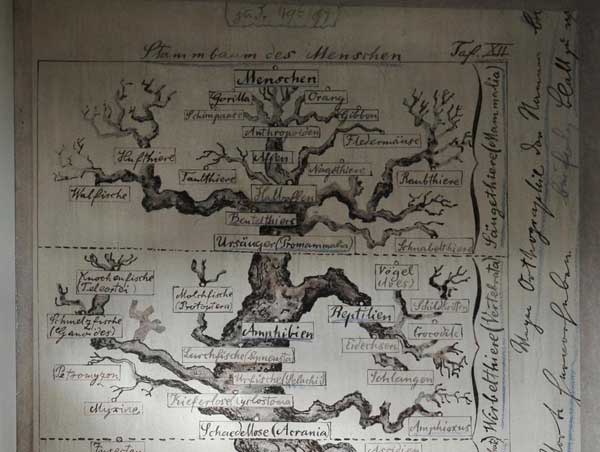 Stammbaum des Menschen Taf. XII
Menschen
Gorilla Orang
Schimpanse Gibbon
Anthropoiden
Fledermäuse
Hufthiere
Affen
Nagethiere
Walfische
Faulthiere
Halbaffen
Raubthiere
Beutelthiere
Ursäuger (Promammalia)
Schnabelthiere
Säugethiere (Mammalia)
Knochenfische
Teleostei
Molchfische
(Protoptera)
Vögel
(Aves)
Schmelzfische
(Ganoides)
Reptilien
Schildkröten
Amphibien
Crocodile
Eidechsen
Lurchfische (Dipneusta)
Petromyzon
Urfische (Selachii)
Schlangen
Kieferlose (Cyclostoma)
Myxine
Schaedellose (Acrania)
Amphioxus
Wirbelthiere (Vertebrata)
Insecten
Ascidien
Wegen Orthographie der Namen
hervorheben